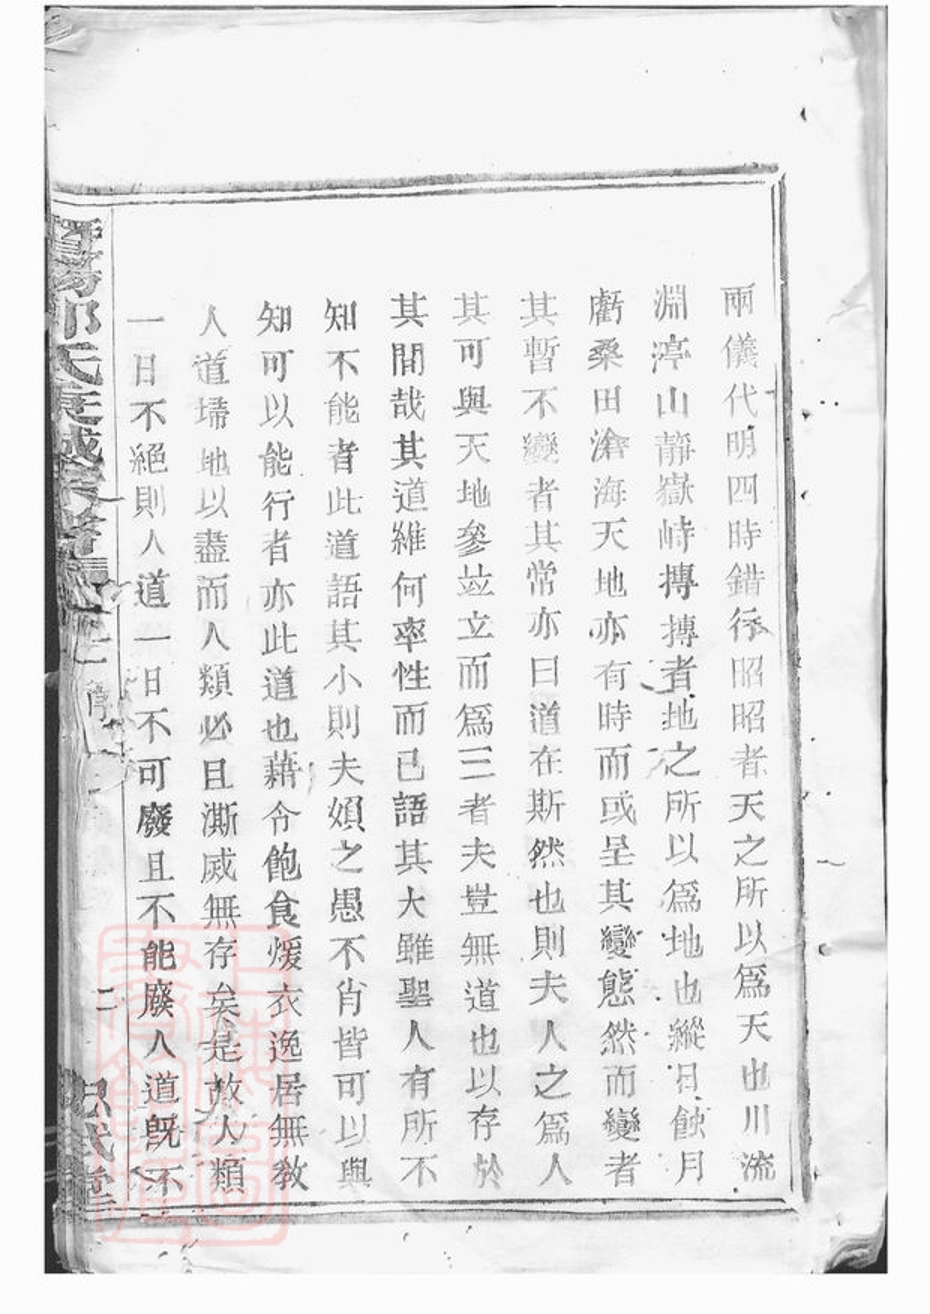 兩儀代明四時錯行昭昭者天之所以爲天也川流
淵渟山靜嶽峙摶摶者地之所以爲地也縱日蝕月
虧桑田滄海天地亦有時而或呈其變態然而變者
其暫不變者其常亦曰道在斯然也則夫人之爲人
其可與天地參竝立而爲三者夫豈無道也以存於
其間哉其道維何率性而已語其大雖聖人有所不
知不能者此道語其小則夫婦之愚不肖皆可以與
知可以能行者亦此道也藉令飽食煖衣逸居無教
人道埽地以盡而人類必且澌滅無存矣是故人類
一日不絕則人道一日不可廢且不能廢人道旣不
暨陽邱氏 序
二